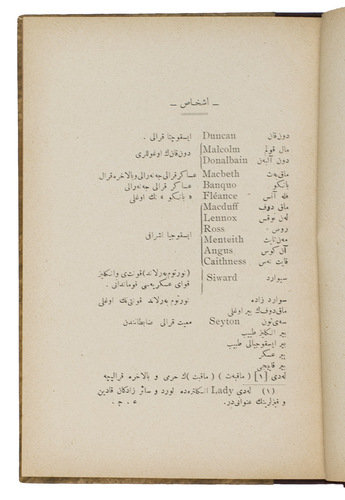 — اشخاص —
دونقان Duncan ایسقوچیا قرالی .
مال قولم Malcolm
دون آلبهن Donalbain دونقانك اوغوللری
ماقبهت Macbeth عساكر قرالی جهنهرالی وبالاخره قرال
بانكو Banquo عساكر قرالی جهنهرالی
فله آنس Fléance « بانكو » نك اوغلی
ماق دوف Macduff
لهن نوقس Lennox
روس Ross
مهنتایث Menteith ایسقوچیا اشرافی
آنكوس Angus
قایت نهس Caithness
سیوارد Siward (نورتومبهرلاند) قونتی وانكلیز قوای عسكریهسی قوماندانی .
سیوارد زاده نورتومبهرلاند قونتنك اوغلی
ماقدوفك بیر اوغلی
سهیتون Seyton معیت قرالی ضابطانندن
بیر انكلیز طبیب
بیر ایسقوچیالی طبیب
بیر عسكر
بیر قاپیجی
لهدی [١] (ماقبهت) (ماقبت) ك حرمی و بالاخره قرالیچه
(١) لهدی Lady انكلترهده لورد و سائر زادكان قادین
و قیزلرینك عنوانیدر. ع . ج .